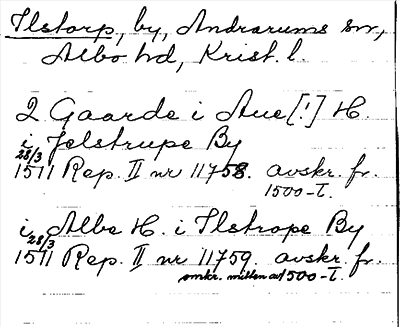 Ilstorp, by, Andrarums sn,
Albo hd, Krist. l.
2 Gaarde i Aue[!] H.
i Jelstrupe By
28/3
1511 Rep. II nr 11758. avskr. fr.
1500-t.
i Albe H. i Ilstrope By
28/3
1511 Rep. II nr 11759. avskr. fr.
omkr. mitten av 1500-t.